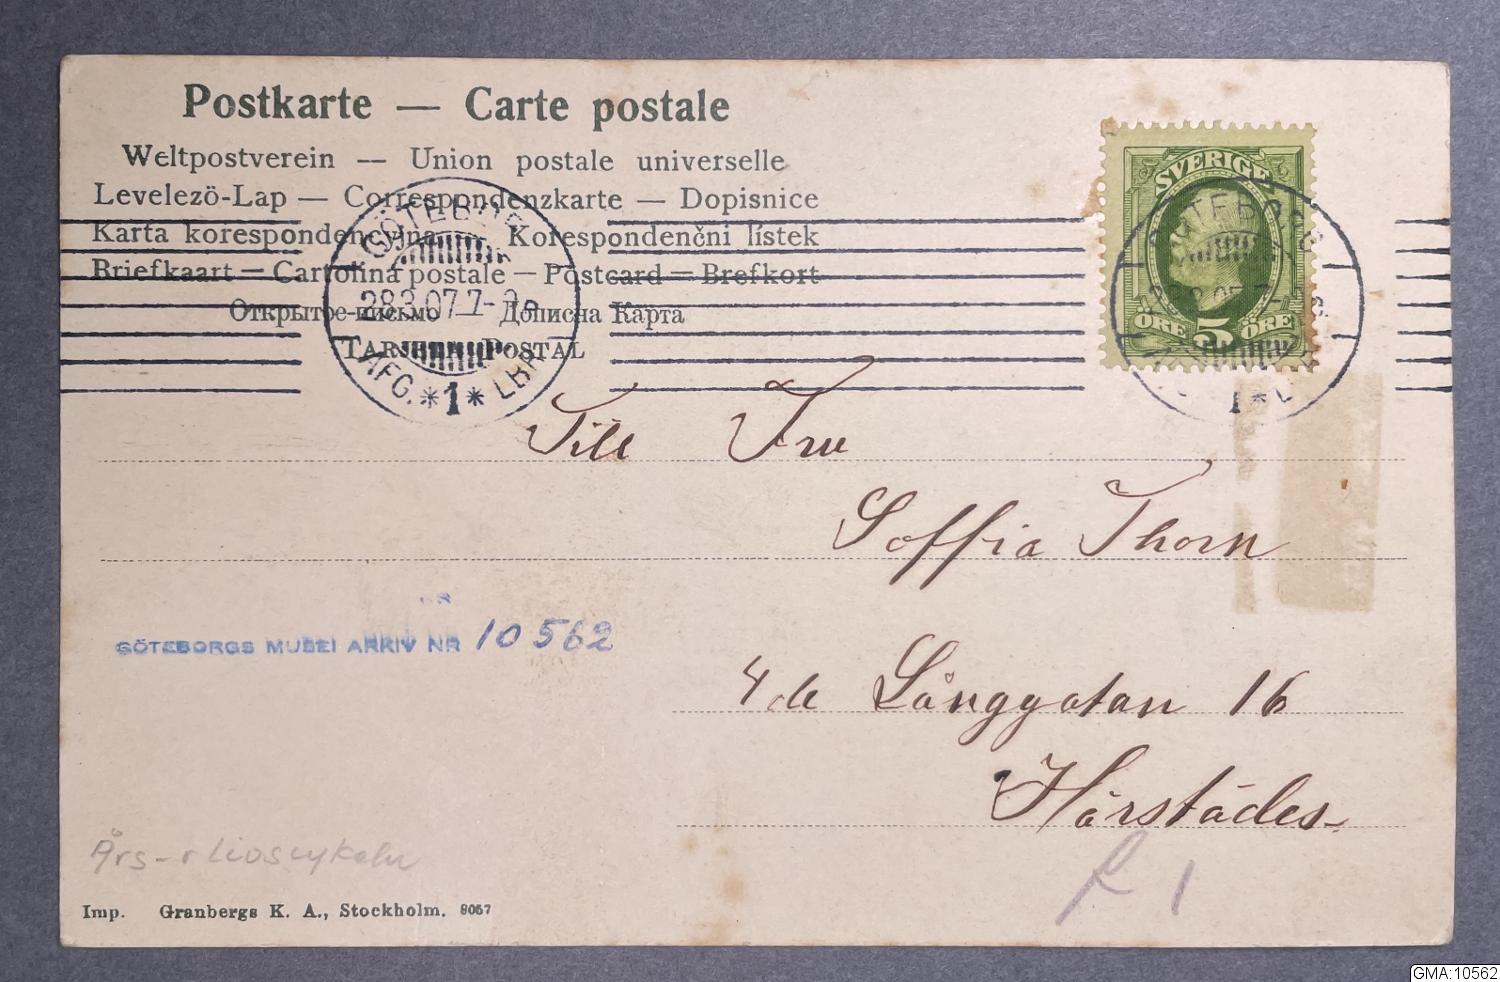 Postkarte — Carte postale
Weltpostverein — Union postale universelle
Levelezö-Lap — Correspondenzkarte — Dopisnice
Karta korespondencyjna Korespondenční lístek
Briefkaart — Cartolina postale — Postcard — Brefkort
Открытое письмо Дописна Карта
TARJETA POSTAL
GÖTEBORG
28.3.07.7-8
AFG. *1* LBR
SVERIGE
ÖRE 5 ÖRE
GÖTEBORG
1
Till Fru
Soffia Thorn
GÖTEBORGS MUSEI ARKIV NR 10562
4de Långgatan 16
Härstädes
Års- o livscykeln
Imp. Granbergs K. A., Stockholm. 8057
GMA:10562